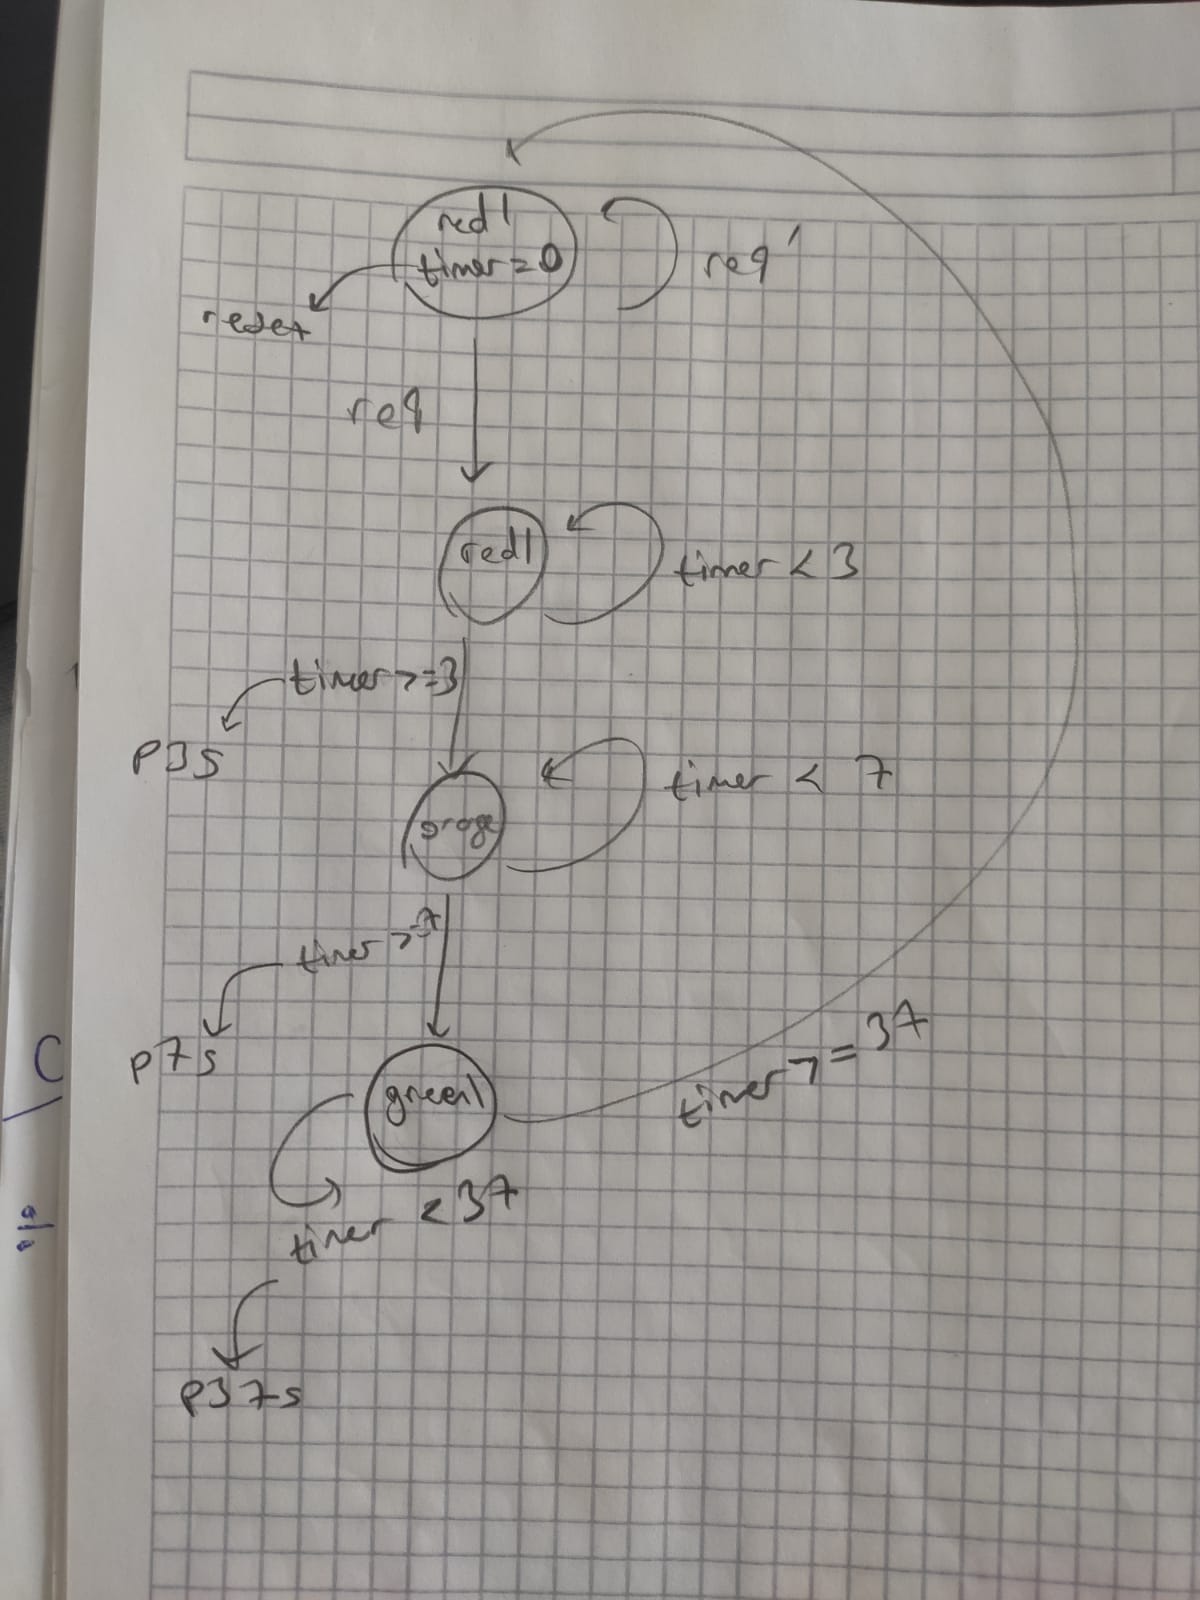 red1
timer = 0
req'
reset
req
red1
timer < 3
timer >= 3
p3s
timer < 7
orage
timer >= 7
p7s
green1
timer >= 37
timer < 37
p37s
C